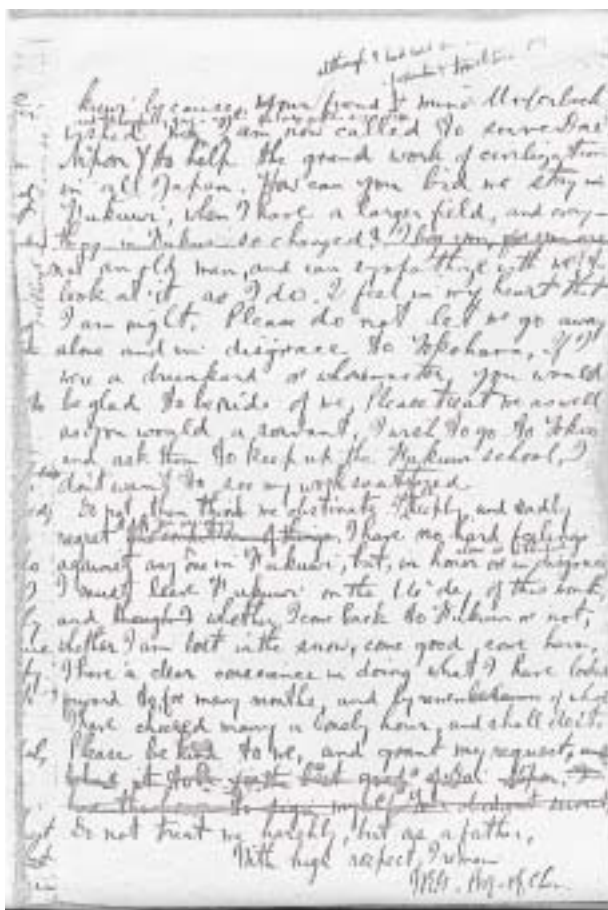 although I had
because, your friend & mine Unferbeck
wished I am now called to serve Dai
Nipon & to help the grand work of civilization
in all Japan. How can you bid me stay in
Fukuwi, when I have a larger field, and every-
thing in Fukuwi so changed? I beg you
not an old man, and can sympathize with me, &
look at it as I do. I feel in my heart that
I am right. Please do not let me go away
alone and in disgrace to Yokohama, if I
were a drunkard or whoremaster you would
be glad to be ride of me, Please treat me as well
as you would a servant, I wish to go to Tokio
and ask them to keep up the Fukuwi school, I
don't want to see my work scattered.
Do not, then think me obstinate I deeply and sadly
regret the condition of things, I have no hard feelings
against any one in Fukuwi, but, in honor or in disgrace
I must leave Fukuwi on the 16 day of this month,
and whether I come back to Fukuwi or not,
whether I am lost in the snow, come good, come harm,
I have a clear conscience in doing what I have looked
forward to for many months, and by remembrance of which
I have cheered many a lonely hour, and shall do it.
Please be kind to me, and grant my request, and
Nipon. I
Do not treat me harshly, but as a father,
With high respect, I remain
W.E.G. Prof. of Chem.